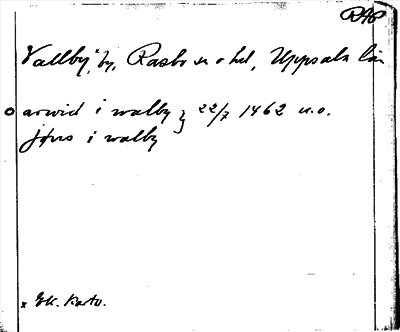 Vallby, by, Rasbo sn o hd, Uppsala län
arwid i walby } 22/7 1462 u.o.
jöns i walby
x Ek. Karta.